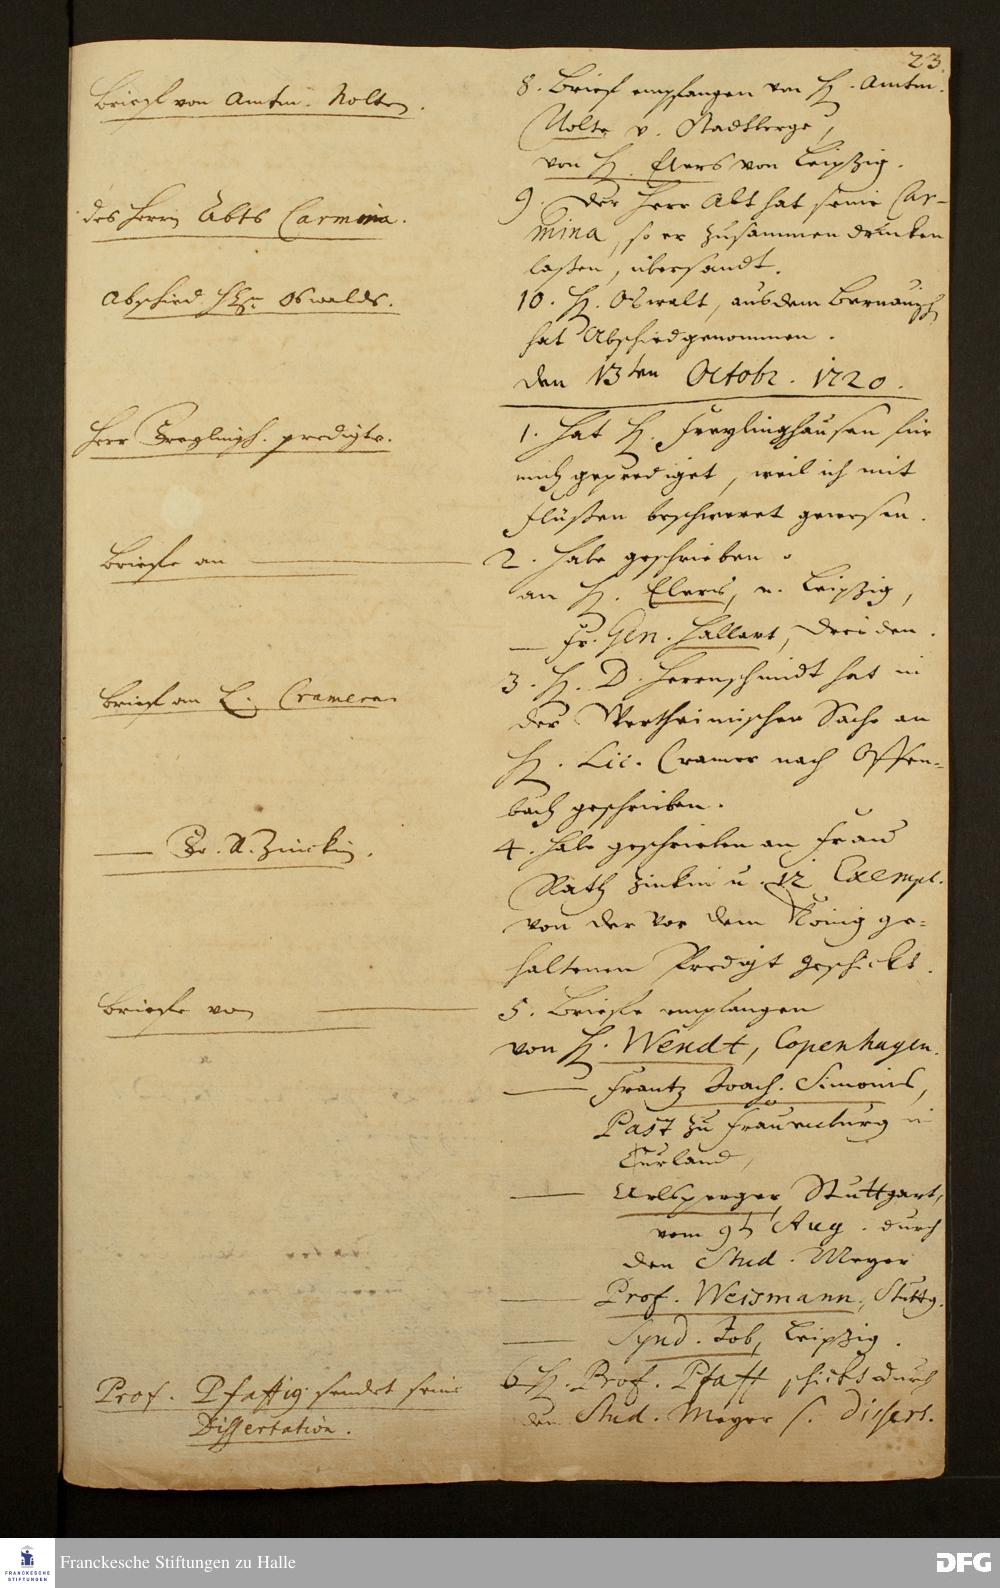 23.
Brieff von Amtm. Nolten.
8. Brieff empfangen von H. Amtm.
Nolte v. Stadtberge,
von H. Elers von Leipzig.
des Herrn Abts Carmina.
9. Der Herr Abt hat seine Car-
mina, so er zusammen drucken
laßen, übersandt.
Abschied HEn Oswalds.
10. H. Oswalt, aus dem Bernauisch
hat Abschied genommen.
den 13ten Octobr. 1720.
Herr Freylingh. predigte.
1. Hat H. Freylinghausen für
mich geprediget, weil ich mit
Flüßen beschweret gewesen.
Brieffe an
2. Habe geschrieben
an H. Elers, n. Leipzig,
— Fr. Gen. Hallart, Dresden.
Brieff an L. Cramern
3. H. D. Herrnschmidt hat in
der Wertheimischen Sache an
H. Lic. Cramer nach Offen-
bach geschrieben.
— Fr. R. Zinckin.
4. Habe geschrieben an Frau
Rath Zinkin u. 12 Exempl.
von der vor dem König ge-
haltenen Predigt geschickt.
Brieffe von
5. Brieffe empfangen
von H. Wendt, Copenhagen.
— Frantz Joach. Simonis,
Past zu Frauenburg in
Curland,
— Urlsperger, Stuttgart,
vom 9t Aug. durch
den Stud. Meyer
— Prof. Weismann, Stuttg.
— Synd. Job, Leipzig.
Prof. Pfaffig sendet seine
Dissertation.
6. H. Prof. Pfaff schickt durch
den Stud. Meyer s. Dissert.
Franckesche Stiftungen zu Halle
FRANCKESCHE
STIFTUNGEN
DFG